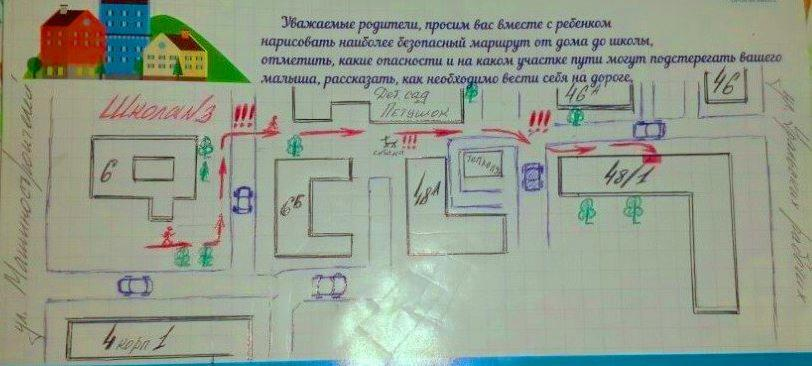 Уважаемые родители, просим вас вместе с ребенком
нарисовать наиболее безопасный маршрут от дома до школы,
отметить, какие опасности и на каком участке пути могут подстерегать вашего
малыша, рассказать, как необходимо вести себя на дороге.
Школа №3
!!!
Дет сад
Петушок
46А
46
!!!
!!!
6
6Б
48А
48/1
4 корп 1
ул. Машиностроителей
ул.